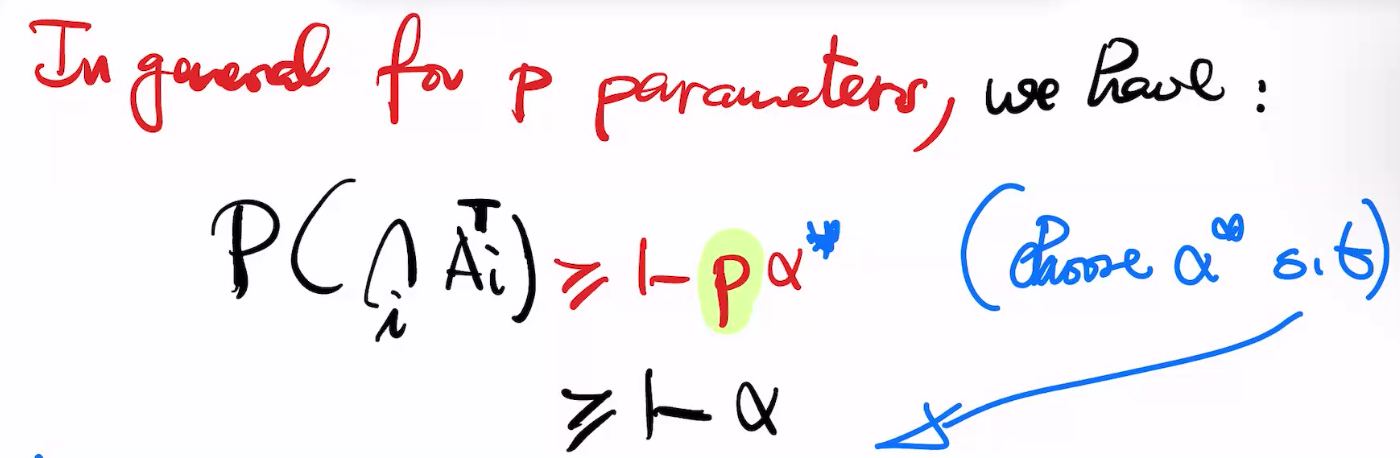 In general for p parameters, we have :
P(⋂_i A_i^T) ≥ 1 - p α* (choose α* s.t)
≥ 1 - α